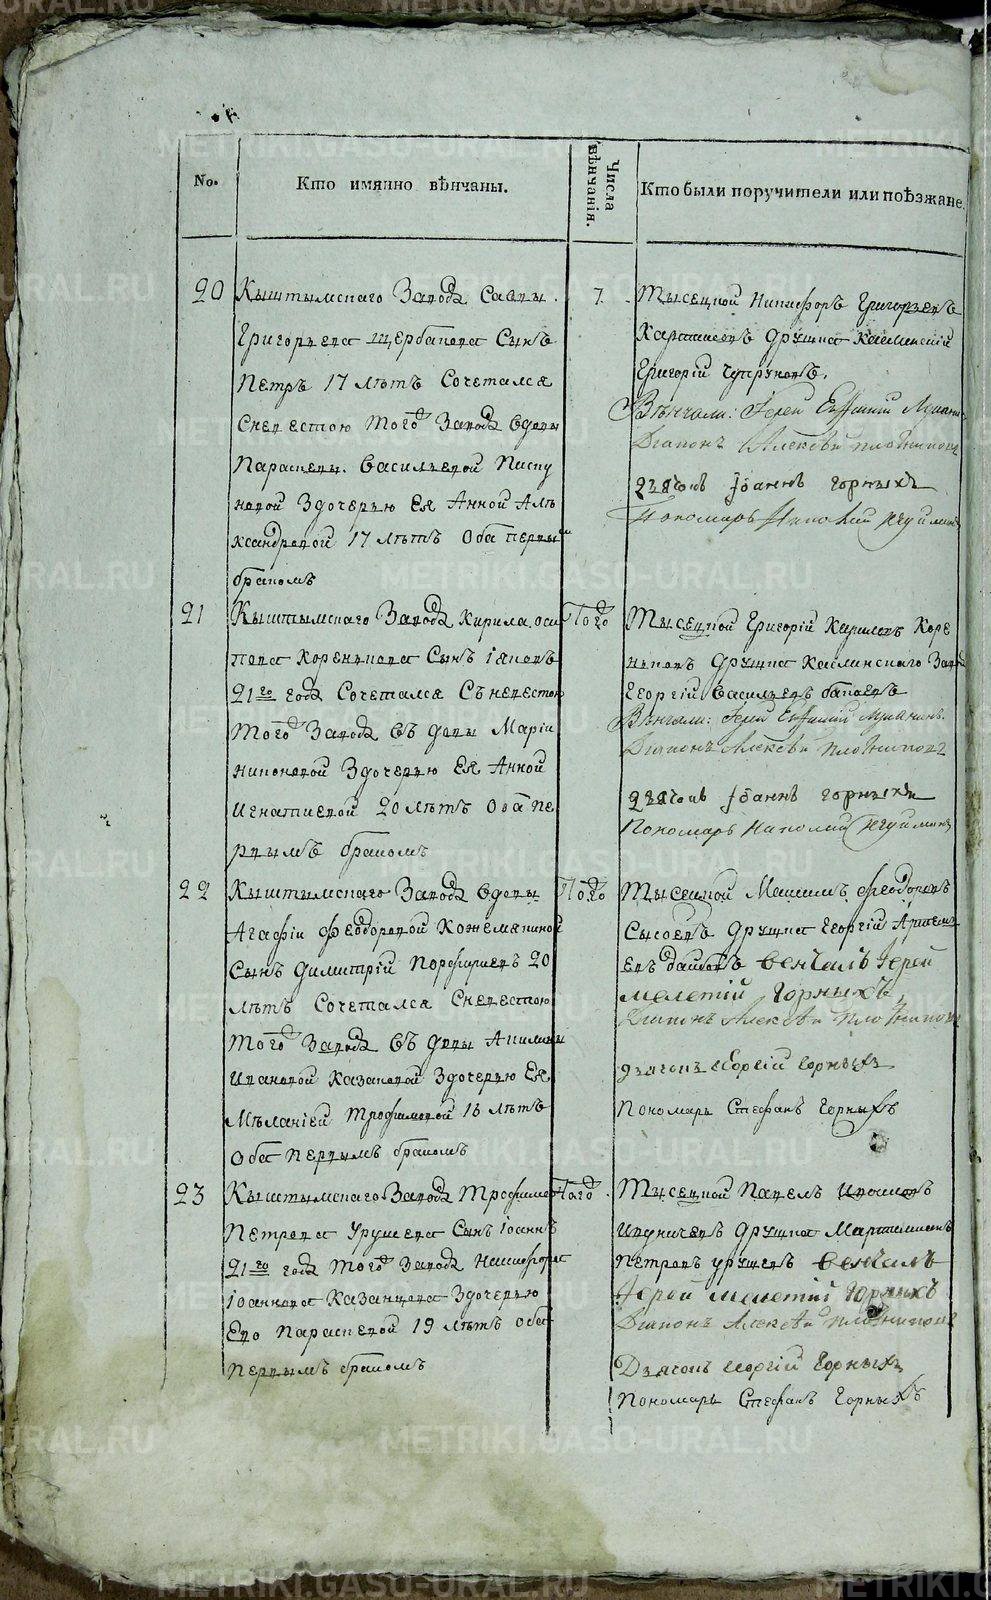 No.
Кто имянно вѣнчаны.
Числа вѣнчанія.
Кто были поручители или поѣзжане.
20
Кыштымскаго Завода Саввы
Григорьева Щербакова Сынъ
Петръ 17 лѣтъ Сочетался
Сневестою того Завода вдовы
Парасковьи Васильевой Писку
новой Здочерью Ея Анной Але
ксандровой 17 лѣтъ Оба первы
бракомъ
7.
Тысецкой Никифоръ Григорьевъ
дружка Каслинскій
Григорій
Вѣнчали: Іерей Евфимій
Діаконъ Алексѣй Плотниковъ
дьячокъ Іоаннъ Горныхъ
Пономарь
21
Кыштымскаго Завода Кирила Оси
пова Коренкова Сынъ Іяковъ
21го года Сочетался Съневестою
того Завода Въдовы Маріи
Никоновой Здочерью Ея Анной
Игнатиевой 20 лѣтъ Оба пе
рвымъ бракомъ
Тогдо
Тысецкой Григорій Кириловъ Коре
нковъ дружка Каслинскаго Заво
Георгій Васильевъ
Вѣнчали: Іерей Евфимій
Діаконъ Алексѣй Плотниковъ
дьячокъ Іоаннъ Горныхъ
Пономарь
22
Кыштымскаго Завода Вдовы
Агафіи Феодоровой Кожемякиной
Сынъ Димитрій Порфириевъ 20
лѣтъ Сочетался Сневестою
того Завода Въ довы Акилины
Ивановой Казаковой Здочерью Ея
Мѣланіей Трофимовой 16 лѣтъ
Оба первымъ бракомъ
Тогдо
Тысецкой Максимъ Феодоровъ
Сысоевъ дружка Георгій Артемь
евъ венчалъ Іерей
Мелетій Горныхъ
Діаконъ Алексѣй Плотниковъ
дьячокъ Георгій Горныхъ
Пономарь Стефанъ Горныхъ
23
Кыштымскаго Завода Трофима
Петрова Урушева Сынъ Іоаннъ
21го года того Завода Никифора
Іоаннова Казанцова Здочерью
Ево Парасковой 19 лѣтъ Оба
Первымъ бракомъ
Тогдо
Тысецкой Павелъ
дружка
Петровъ Урушевъ венчалъ
Іерей Мелетій Горныхъ
Діаконъ Алексѣй Плотниковъ
Дьячокъ Георгій Горныхъ
Пономарь Стефанъ Горныхъ
METRIKI.GASO-URAL.RU